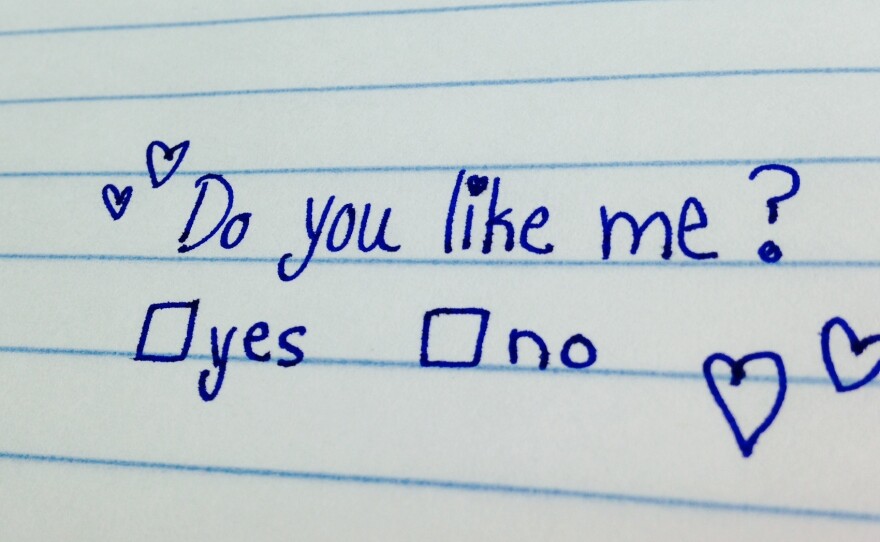 Do you like me?
yes no